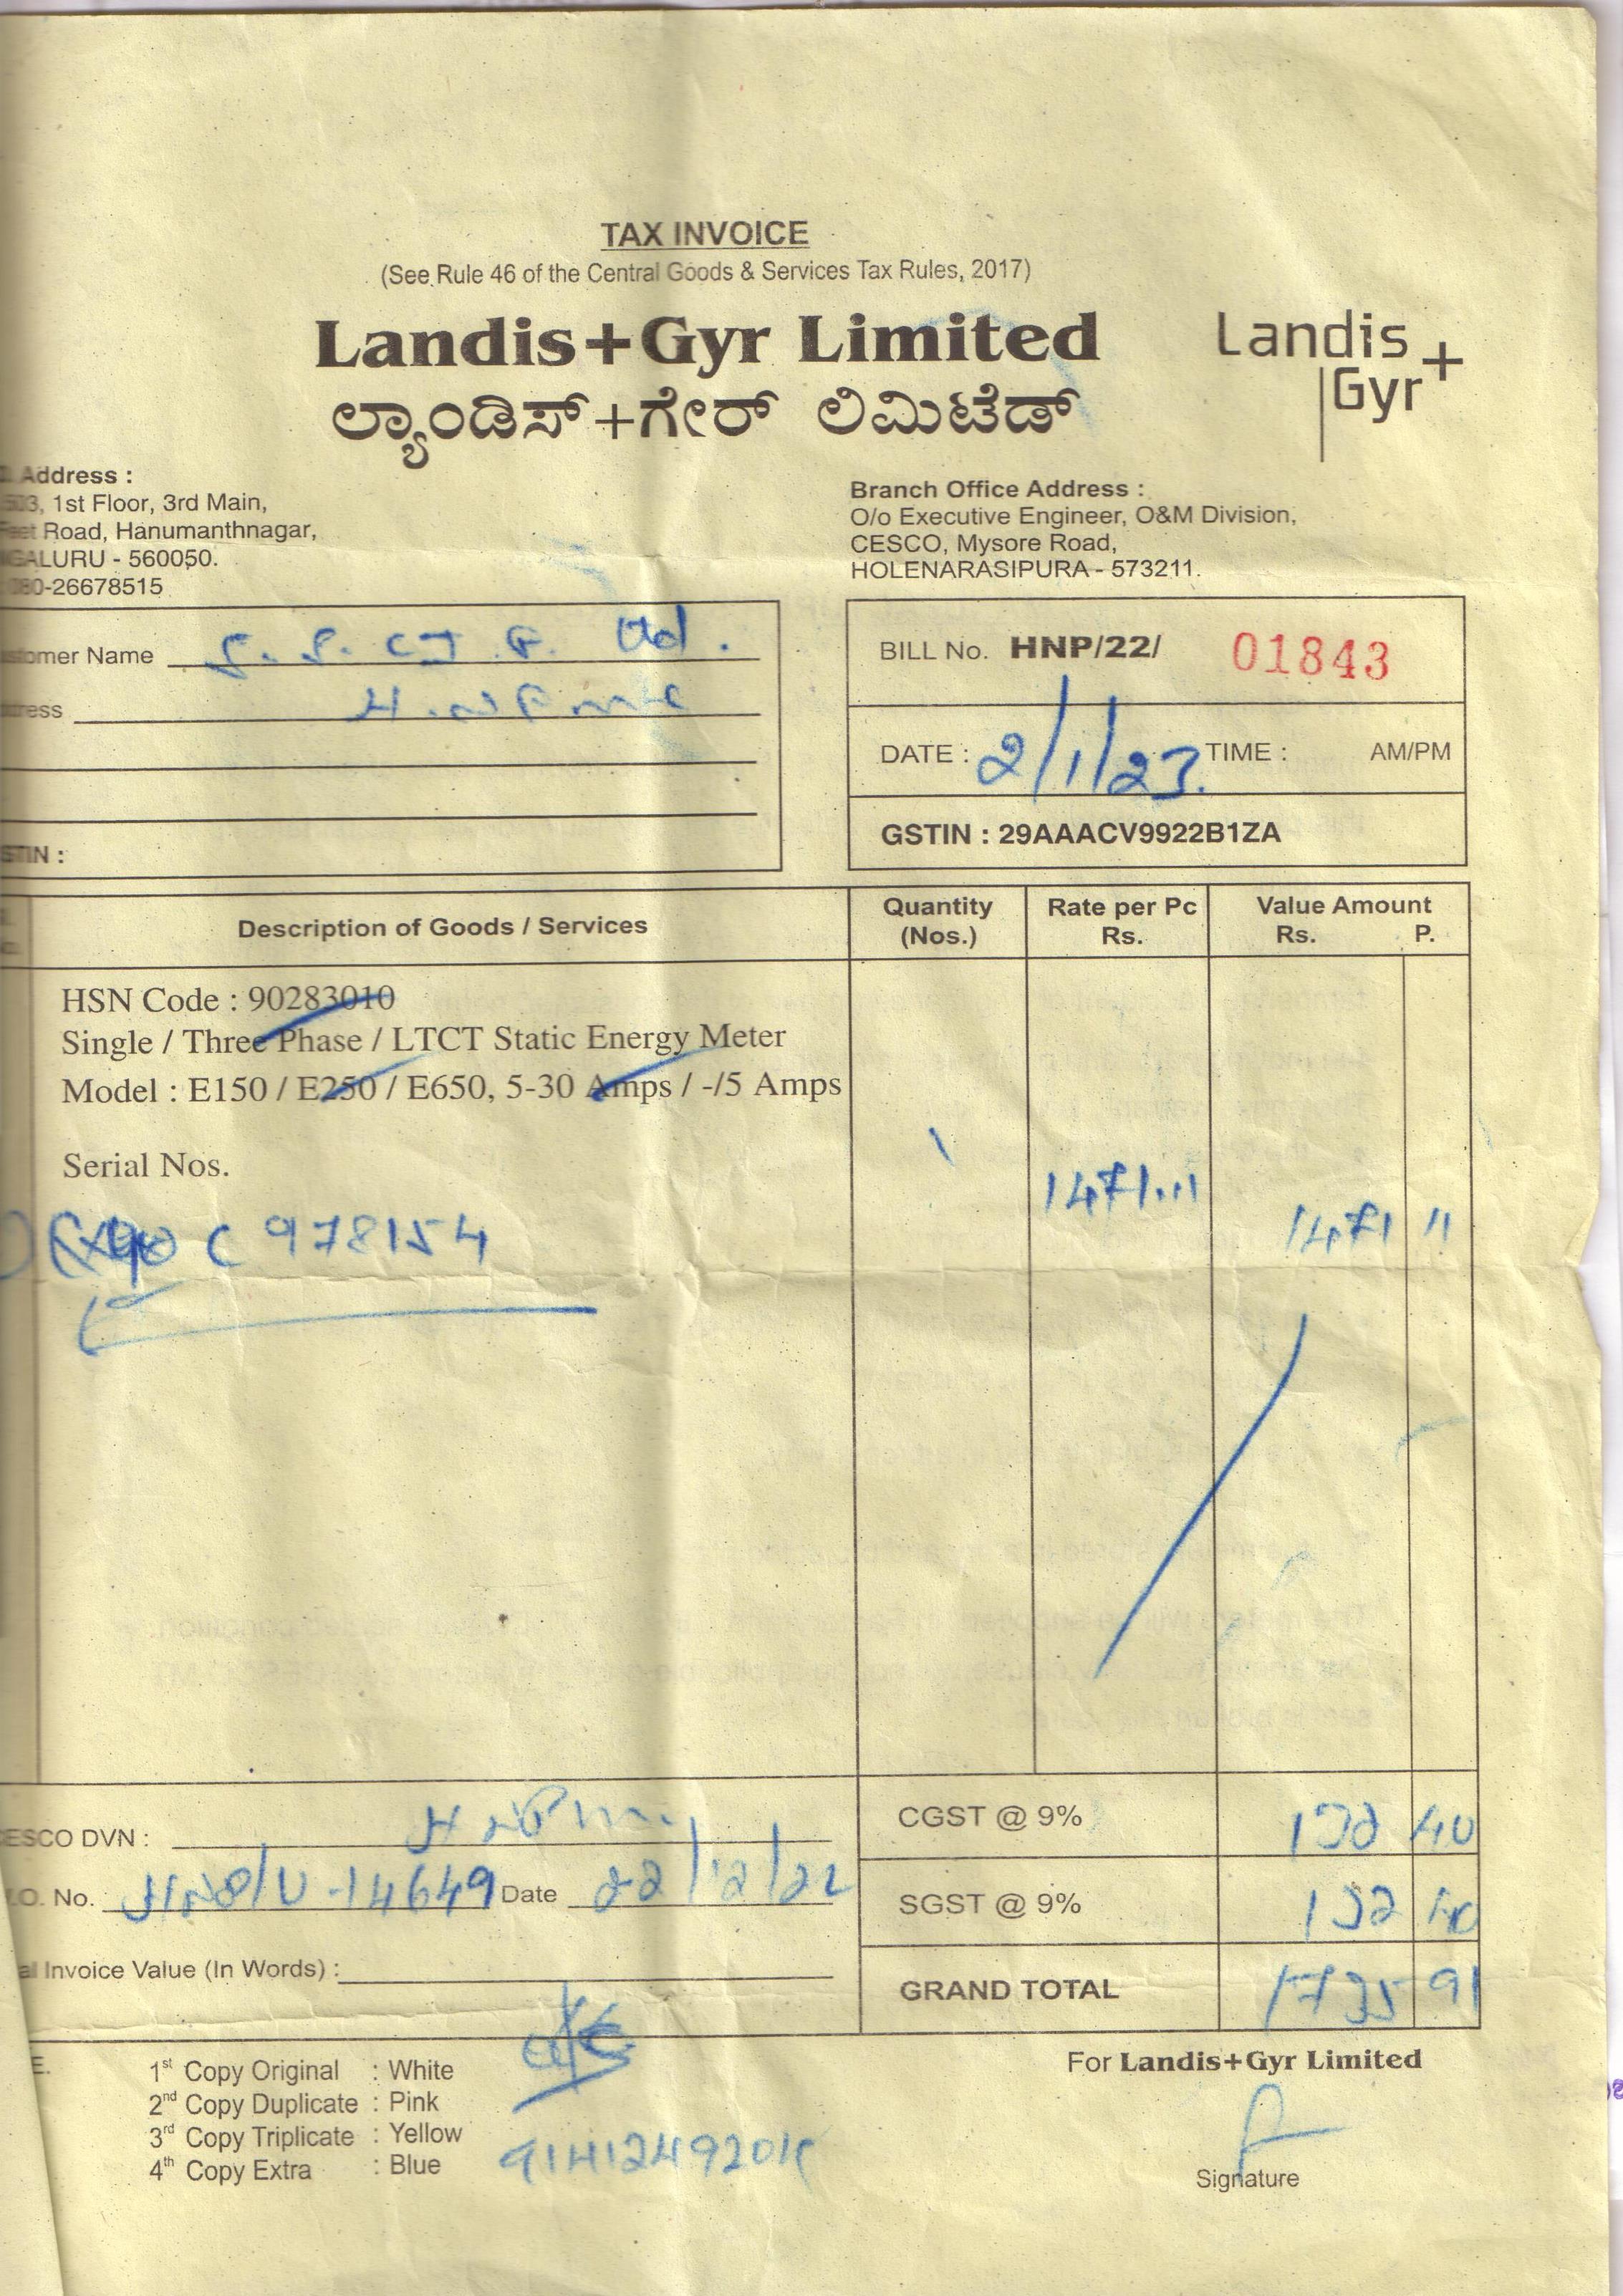 TAX INVOICE
(See Rule 46 of the Central Goods & Services Tax Rules, 2017)
Landis+Gyr Limited
ಲ್ಯಾಂಡಿಸ್+ಗೇರ್ ಲಿಮಿಟೆಡ್
Landis
Gyr+
Address :
503, 1st Floor, 3rd Main,
Feet Road, Hanumanthnagar,
GALURU - 560050.
080-26678515
Branch Office Address :
O/o Executive Engineer, O&M Division,
CESCO, Mysore Road,
HOLENARASIPURA - 573211.
tomer Name
ress
STIN :
BILL No. HNP/22/ 01843
DATE : 2/1/23. TIME : AM/PM
GSTIN : 29AAACV9922B1ZA
Description of Goods / Services
Quantity (Nos.)
Rate per Pc Rs.
Value Amount Rs. P.
HSN Code : 90283010
Single / Three Phase / LTCT Static Energy Meter
Model : E150 / E250 / E650, 5-30 Amps / -/5 Amps
Serial Nos.
C 978154
1
1471.11
1471 11
ESCO DVN :
CGST @ 9% 132 40
O. No. 14649 Date 22/12/22
SGST @ 9% 132 40
al Invoice Value (In Words) :
GRAND TOTAL 1735 91
E. 1st Copy Original : White
2nd Copy Duplicate : Pink
3rd Copy Triplicate : Yellow
4th Copy Extra : Blue
For Landis+Gyr Limited
Signature